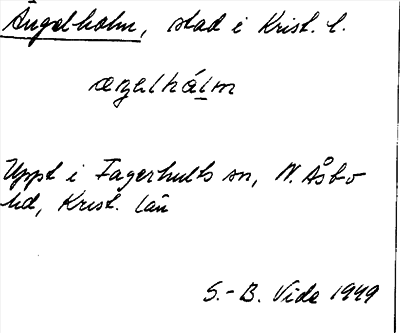 Ängelholm, stad i Krist. l.
æŋelhålm
Uppt i Fagerhults sn, N. Åsbo
hd, Krist. län
S.-B. Vide 1949